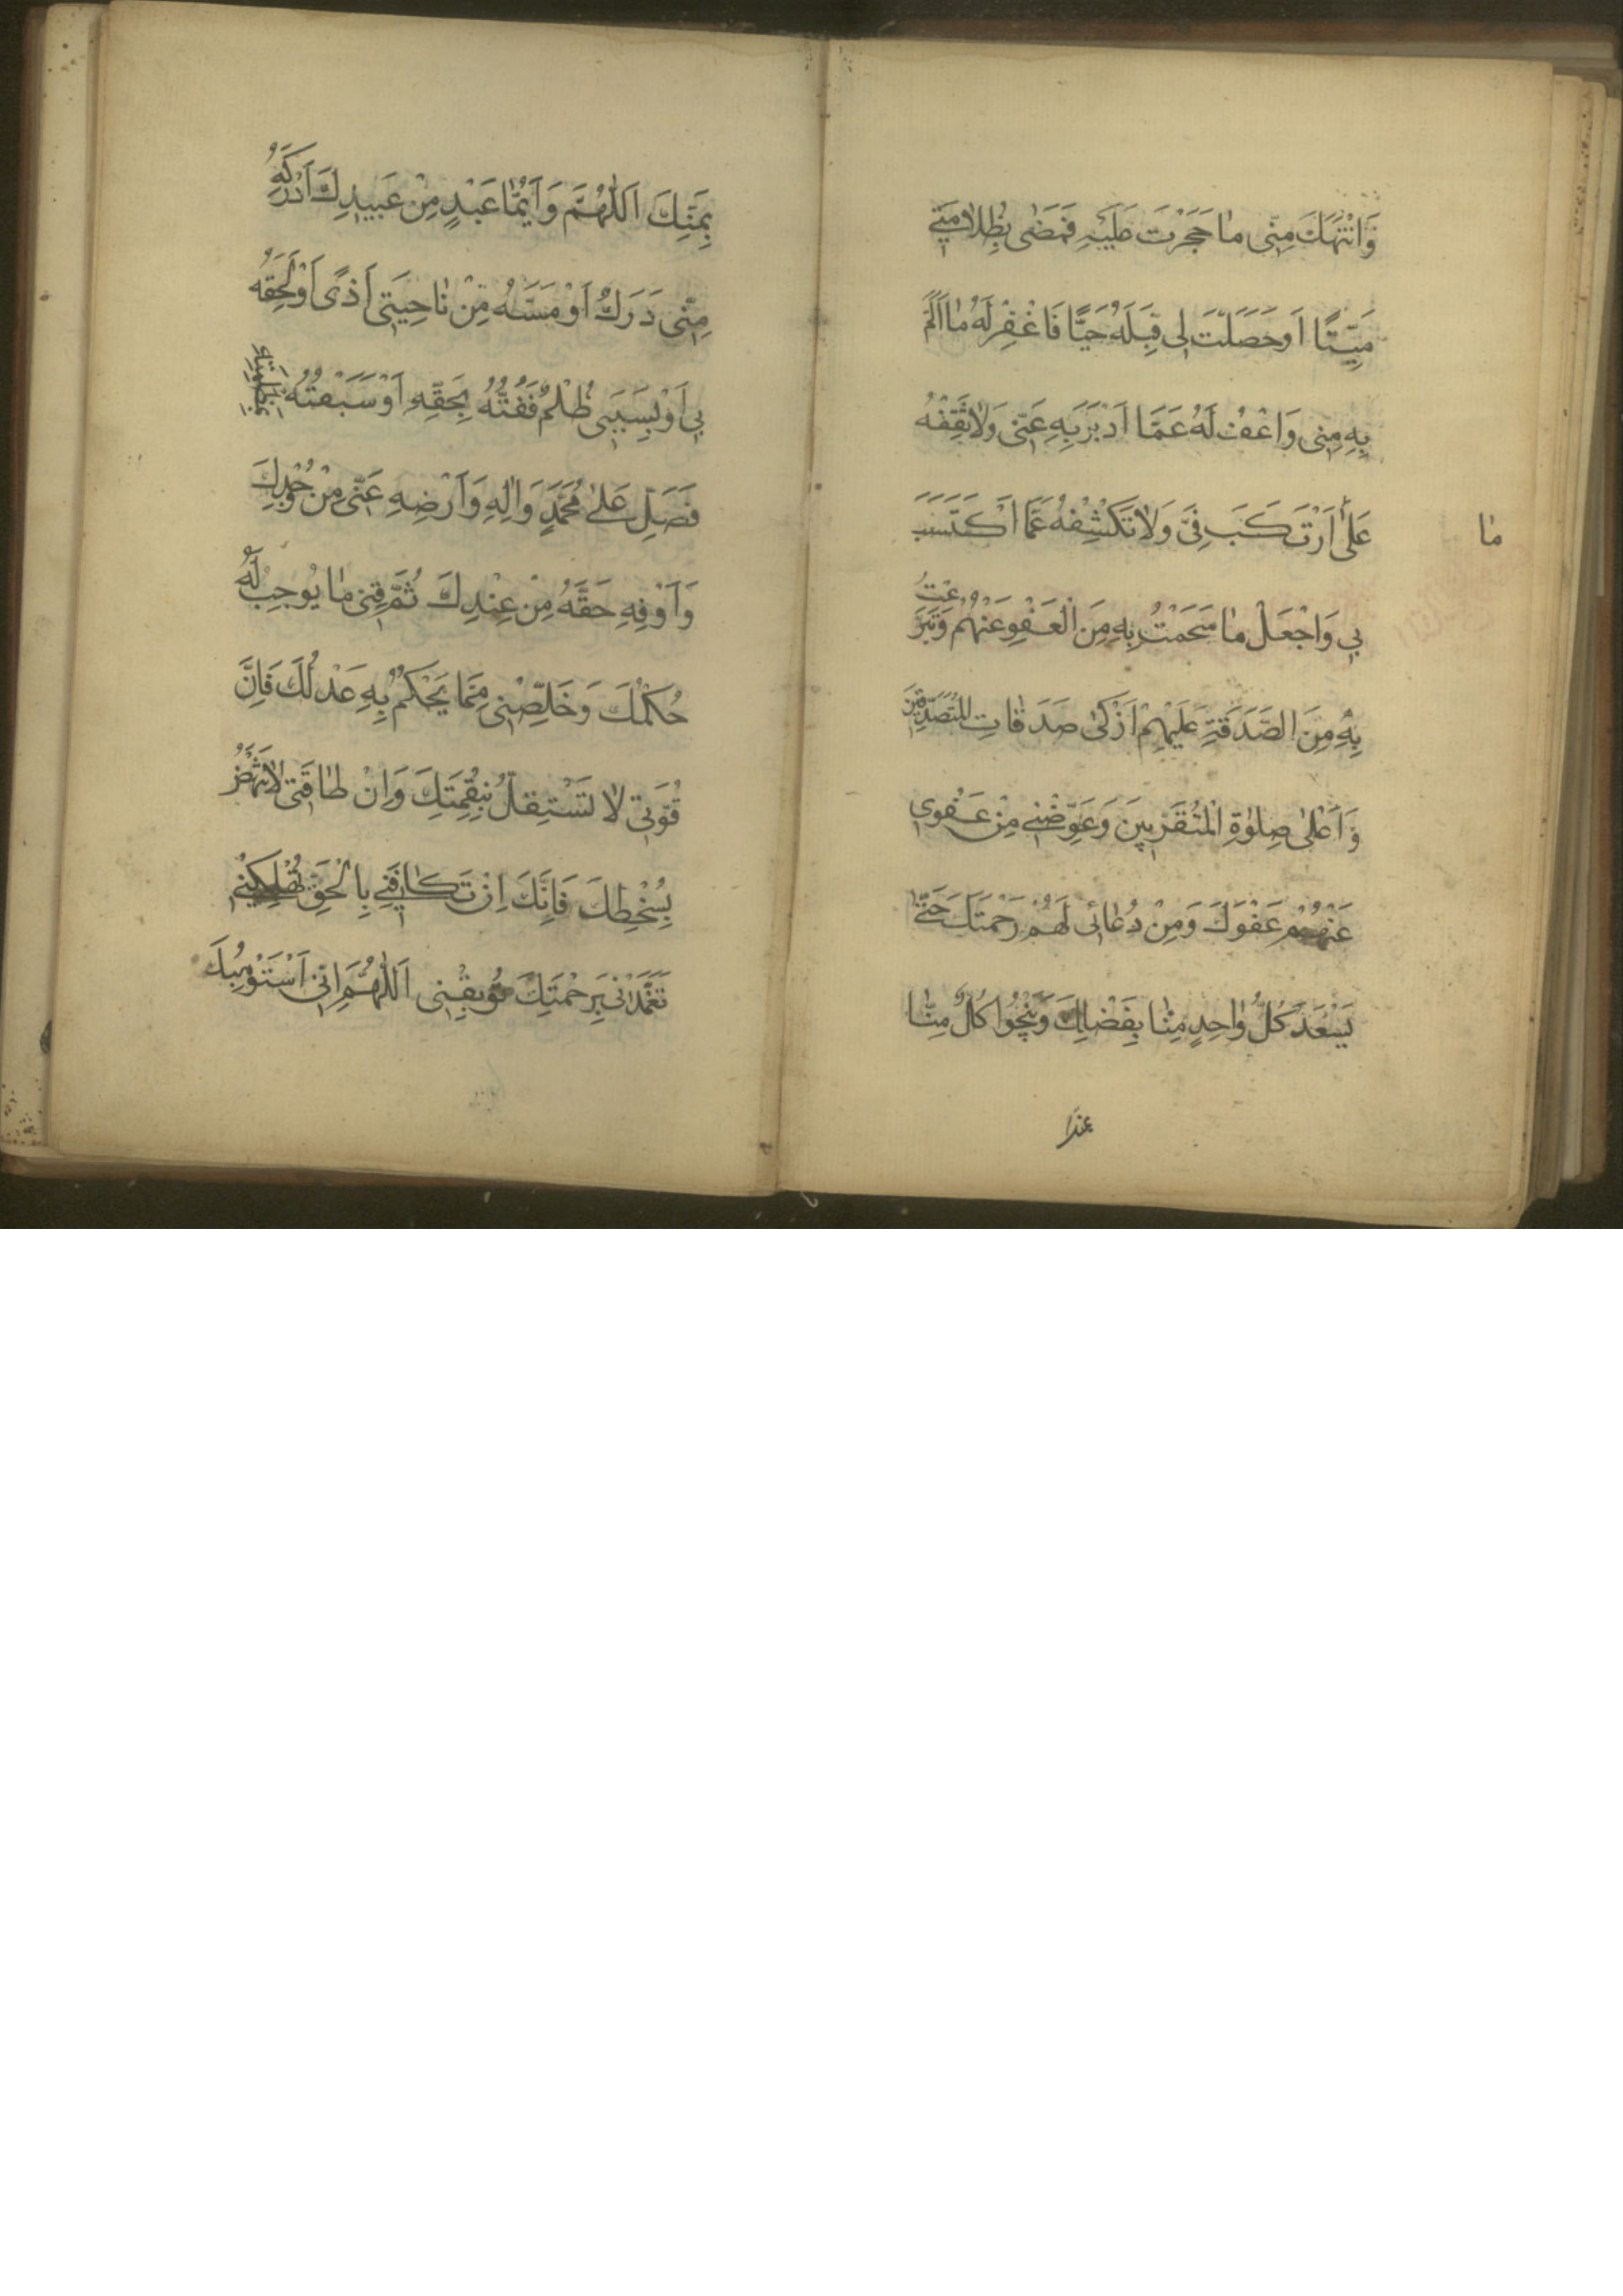 وَانْتَهَكَ مِنّى مٰا حَجَرْتَ عَلَيْهِ فَمَضٰى بِظُلاٰمَتى
مَيِّتًا اَوحَصَلَتْ لى قِبَلَهُ حَيًّا فَاغْفِرْ لَهُ مٰا اَلَمَّ
بِهِ مِنّى وَاعْفُ لَهُ عَمَّا اَدْبَرَ بِهِ عَنّى وَلاٰ تَقِفْهُ
عَلىٰ اَرْتَكَبَ فِىَّ وَلاٰ تَكْشِفْهُ عَمَّا اكْتَسَبَ
مٰا
بى وَاجْعَلْ مٰا سَمَحْتُ بِهِ مِنَ الْعَفْوِ عَنْهُمْ وَتَبَرَّعْتُ
بِهِ مِنَ الصَّدَقَةِ عَلَيْهِمْ اَزْكىٰ صَدَقٰاتِ الْمُتَصَدِّقينَ
وَاَعْلىٰ صِلوٰةِ الْمُتَقَرِّبينَ وَعَوِّضْنى مِنْ عَفْوى
عَنْهُمْ عَفْوَكَ وَمِنْ دُعٰائى لَهُمْ رَحْمَتَكَ حَتّٰى
يَسْعَدَ كُلُّ وٰاحِدٍ مِنّٰا بِفَضْلِكَ وَيَنْجُوا كُلٌّ مِنّٰا
بِمَنِّكَ اَللّٰهُمَّ وَاَيُّمٰا عَبْدٍ مِنْ عَبيدِكَ اَدْرَكَهُ
مِنّى دَرَكٌ اَوْ مَسَّهُ مِنْ نٰاحِيَتى اَذًى اَوْ لَحِقَهُ
بى اَوْ بِسَبَبى ظُلْمٌ فَفُتُّهُ بِحَقِّهِ اَوْ سَبَقْتُهُ بِمَظْلِمَتِهِ
فَصَلِّ عَلىٰ مُحَمَّدٍ وَاٰلِهِ وَاَرْضِهِ عَنّى مِنْ وُجْدِكَ
وَاَوْفِهِ حَقَّهُ مِنْ عِنْدِكَ ثُمَّ قِنى مٰا يُوجِبُ لَهُ
حُكْمُكَ وَخَلِّصْنى مِمّٰا يَحْكُمُ بِهِ عَدْلُكَ فَاِنَّ
قُوَّتى لاٰ تَسْتَقِلُّ بِنِقْمَتِكَ وَاِنَّ طٰاقَتى لاٰ تَنْهَضُ
بِسُخْطِكَ فَاِنَّكَ اِنْ تُكٰافِنى بِالْحَقِّ تُهْلِكْنى
تَغَمَّدْنى بِرَحْمَتِكَ تُوبِقْنى اَللّٰهُمَّ اِنّى اَسْتَوْهِبُكَ